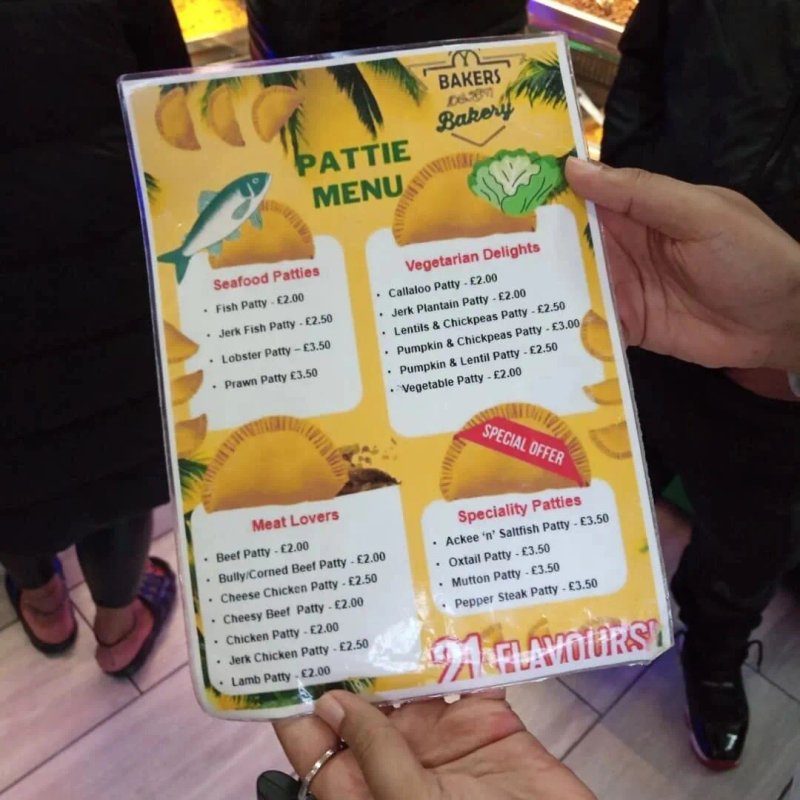 BAKERS
Bakery
PATTIE
MENU
Seafood Patties
• Fish Patty - £2.00
• Jerk Fish Patty - £2.50
• Lobster Patty – £3.50
• Prawn Patty £3.50
Vegetarian Delights
• Callaloo Patty - £2.00
• Jerk Plantain Patty - £2.00
• Lentils & Chickpeas Patty - £2.50
• Pumpkin & Chickpeas Patty - £3.00
• Pumpkin & Lentil Patty - £2.50
• Vegetable Patty - £2.00
Meat Lovers
• Beef Patty - £2.00
• Bully/Corned Beef Patty - £2.00
• Cheese Chicken Patty - £2.50
• Cheesy Beef Patty - £2.00
• Chicken Patty - £2.00
• Jerk Chicken Patty - £2.50
• Lamb Patty - £2.00
SPECIAL OFFER
Speciality Patties
• Ackee 'n' Saltfish Patty - £3.50
• Oxtail Patty - £3.50
• Mutton Patty - £3.50
• Pepper Steak Patty - £3.50
21 FLAVOURS!